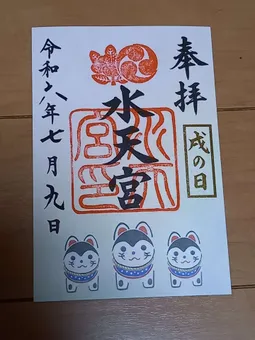 奉拝
戌の日
水天宮
令和六年七月九日